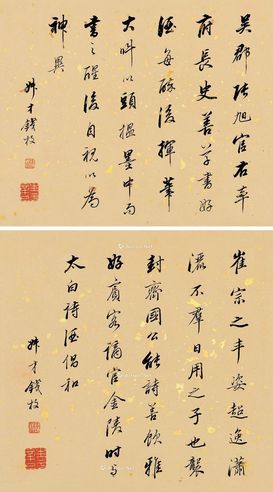 吴郡張旭官右率
府長史善草書好
酒每醉後揮筆
大叫以頭揾墨中而
書之醒後自視以為
神異
叔才錢枚
崔宗之丰姿超逸瀟
灑不羣日用之子也襲
封齊國公能詩善飲雅
好賓客謫官金陵時與
太白詩酒倡和
叔才錢枚